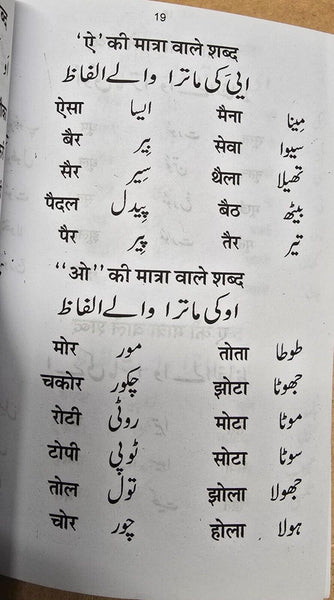 19
'ऐ' की मात्रा वाले शब्द
ایی کی ماترا والے الفاظ
ऐसा ایسا मैना مینا
बैर بیر सेवा سیوا
सैर سیر थैला تھیلا
पैदल پیدل बैठ بیٹھ
पैर پیر तैर تیر
"ओ" की मात्रा वाले शब्द
او کی ماترا والے الفاظ
मोर مور तोता طوطا
चकोर چکور झोटा جھوٹا
रोटी روٹی मोटा موٹا
टोपी ٹوپی सोटा سوٹا
तोल تول झोला جھولا
चोर چور होला ہولا